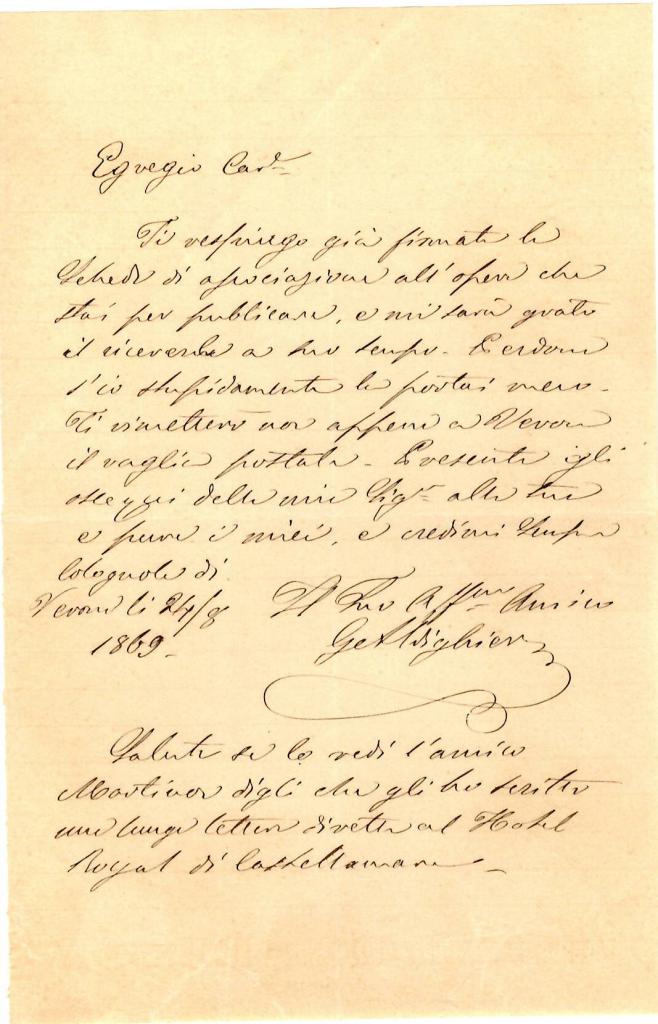 Egregio Cav.r
Ti respingo già firmate le
Schede di associazione all'opera che
stai per publicare, e mi sarà grato
il riceverle a suo tempo. Perdona
s'io stupidamente le portai meco.
Ti rimetterò non appena a Verona
il vaglia postale. Presenta gli
ossequi della mia Sigra alla tua
e pure i miei, e credimi Sempre
Colognola di
Verona li 24/8
1869.
Il Tuo Affmo Amico
G Aldighieri
Saluta se lo vedi l'amico
digli che gli ho scritto
una lunga lettera diretta al Hotel
Royal di Castellamare